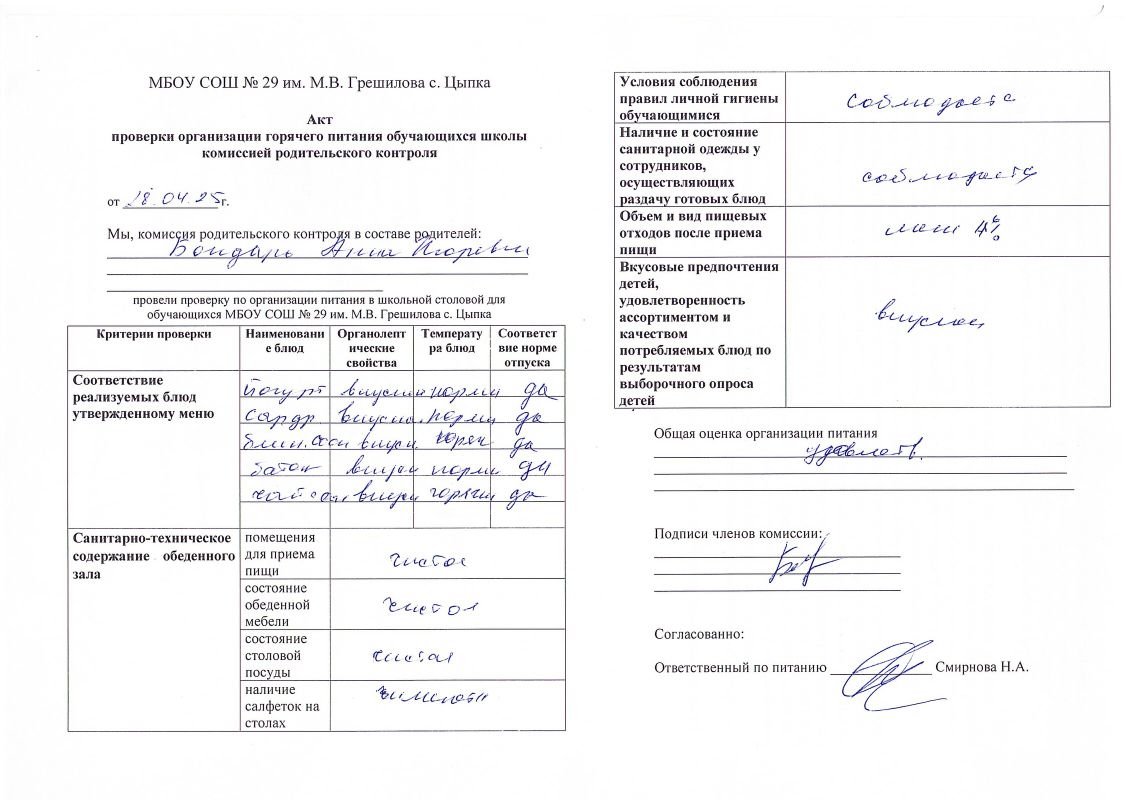 МБОУ СОШ № 29 им. М.В. Грешилова с. Цыпка
Акт
проверки организации горячего питания обучающихся школы
комиссией родительского контроля
от 18.04.25 г.
Мы, комиссия родительского контроля в составе родителей:
Бондарь Анна Игоревна
провели проверку по организации питания в школьной столовой для
обучающихся МБОУ СОШ № 29 им. М.В. Грешилова с. Цыпка
Критерии проверки Наименовани Органолепт Температу Соответст
е блюд ические ра блюд вие норме
свойства отпуска
Соответствие
реализуемых блюд
утвержденному меню
Йогурт да
да
да
батон да
да
Санитарно-техническое
содержание обеденного
зала
помещения
для приема
пищи
чистое
состояние
обеденной
мебели
чистая
состояние
столовой
посуды
чистая
наличие
салфеток на
столах
Условия соблюдения
правил личной гигиены
обучающимися
соблюдаете
Наличие и состояние
санитарной одежды у
сотрудников,
осуществляющих
раздачу готовых блюд
Объем и вид пищевых
отходов после приема
пищи
4%
Вкусовые предпочтения
детей,
удовлетворенность
ассортиментом и
качеством
потребляемых блюд по
результатам
выборочного опроса
детей
Общая оценка организации питания
удовлетв.
Подписи членов комиссии:
Согласованно:
Ответственный по питанию Смирнова Н.А.